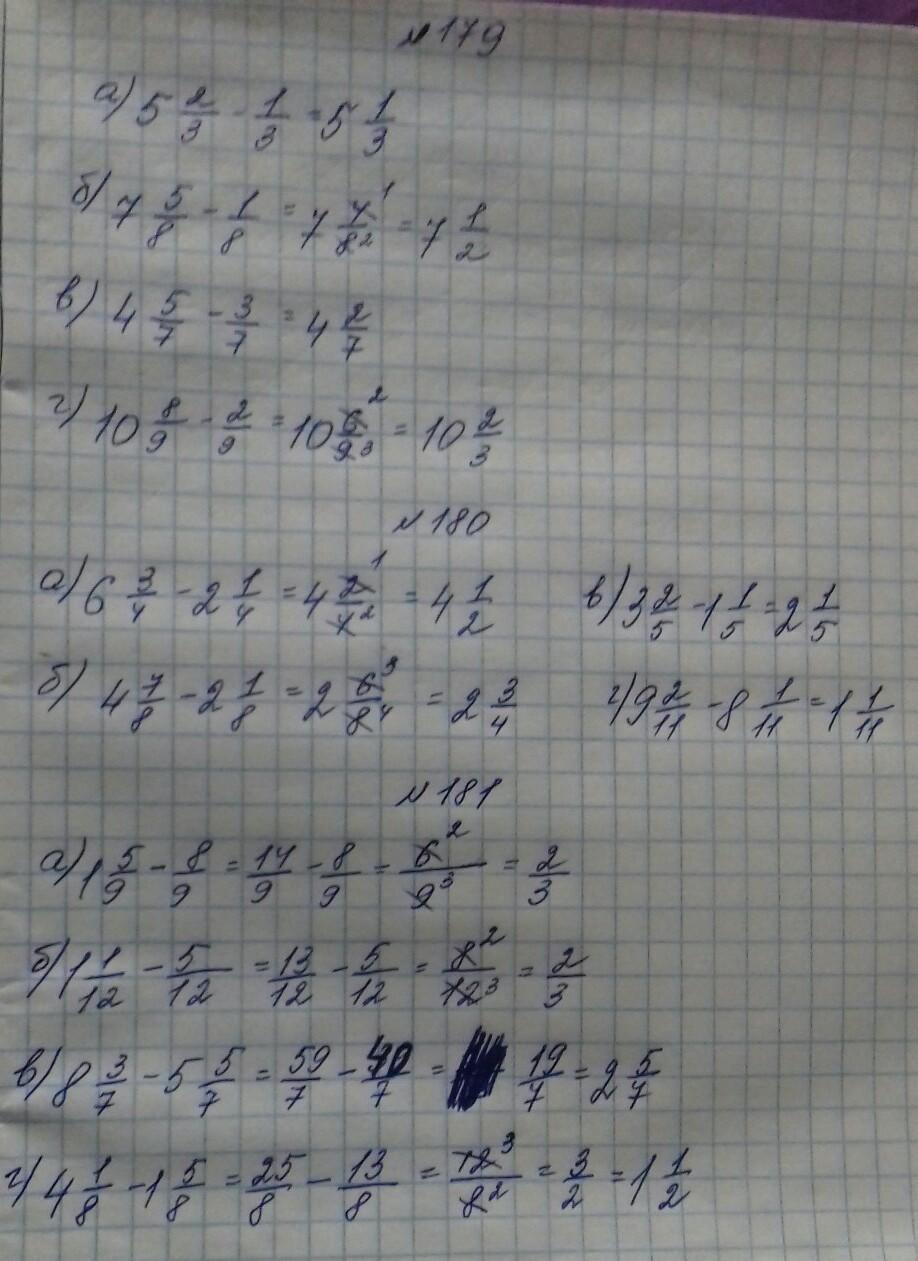 №179
а) 5 2/3 - 1/3 = 5 1/3
б) 7 5/8 - 1/8 = 7 4/8 1 2 = 7 1/2
в) 4 5/7 - 3/7 = 4 2/7
г) 10 8/9 - 2/9 = 10 6/9 2 3 = 10 2/3
№180
а) 6 3/4 - 2 1/4 = 4 2/4 1 2 = 4 1/2 в) 3 2/5 - 1 1/5 = 2 1/5
б) 4 7/8 - 2 1/8 = 2 6/8 3 4 = 2 3/4 г) 9 2/11 - 8 1/11 = 1 1/11
№181
а) 1 5/9 - 8/9 = 14/9 - 8/9 - 6/9 2 3 = 2/3
б) 1 1/12 - 5/12 = 13/12 - 5/12 = 8/12 2 3 = 2/3
в) 8 3/7 - 5 5/7 = 59/7 - 40/7 = 19/7 = 2 5/7
г) 4 1/8 - 1 5/8 = 25/8 - 13/8 = 12/8 3 2 = 3/2 = 1 1/2